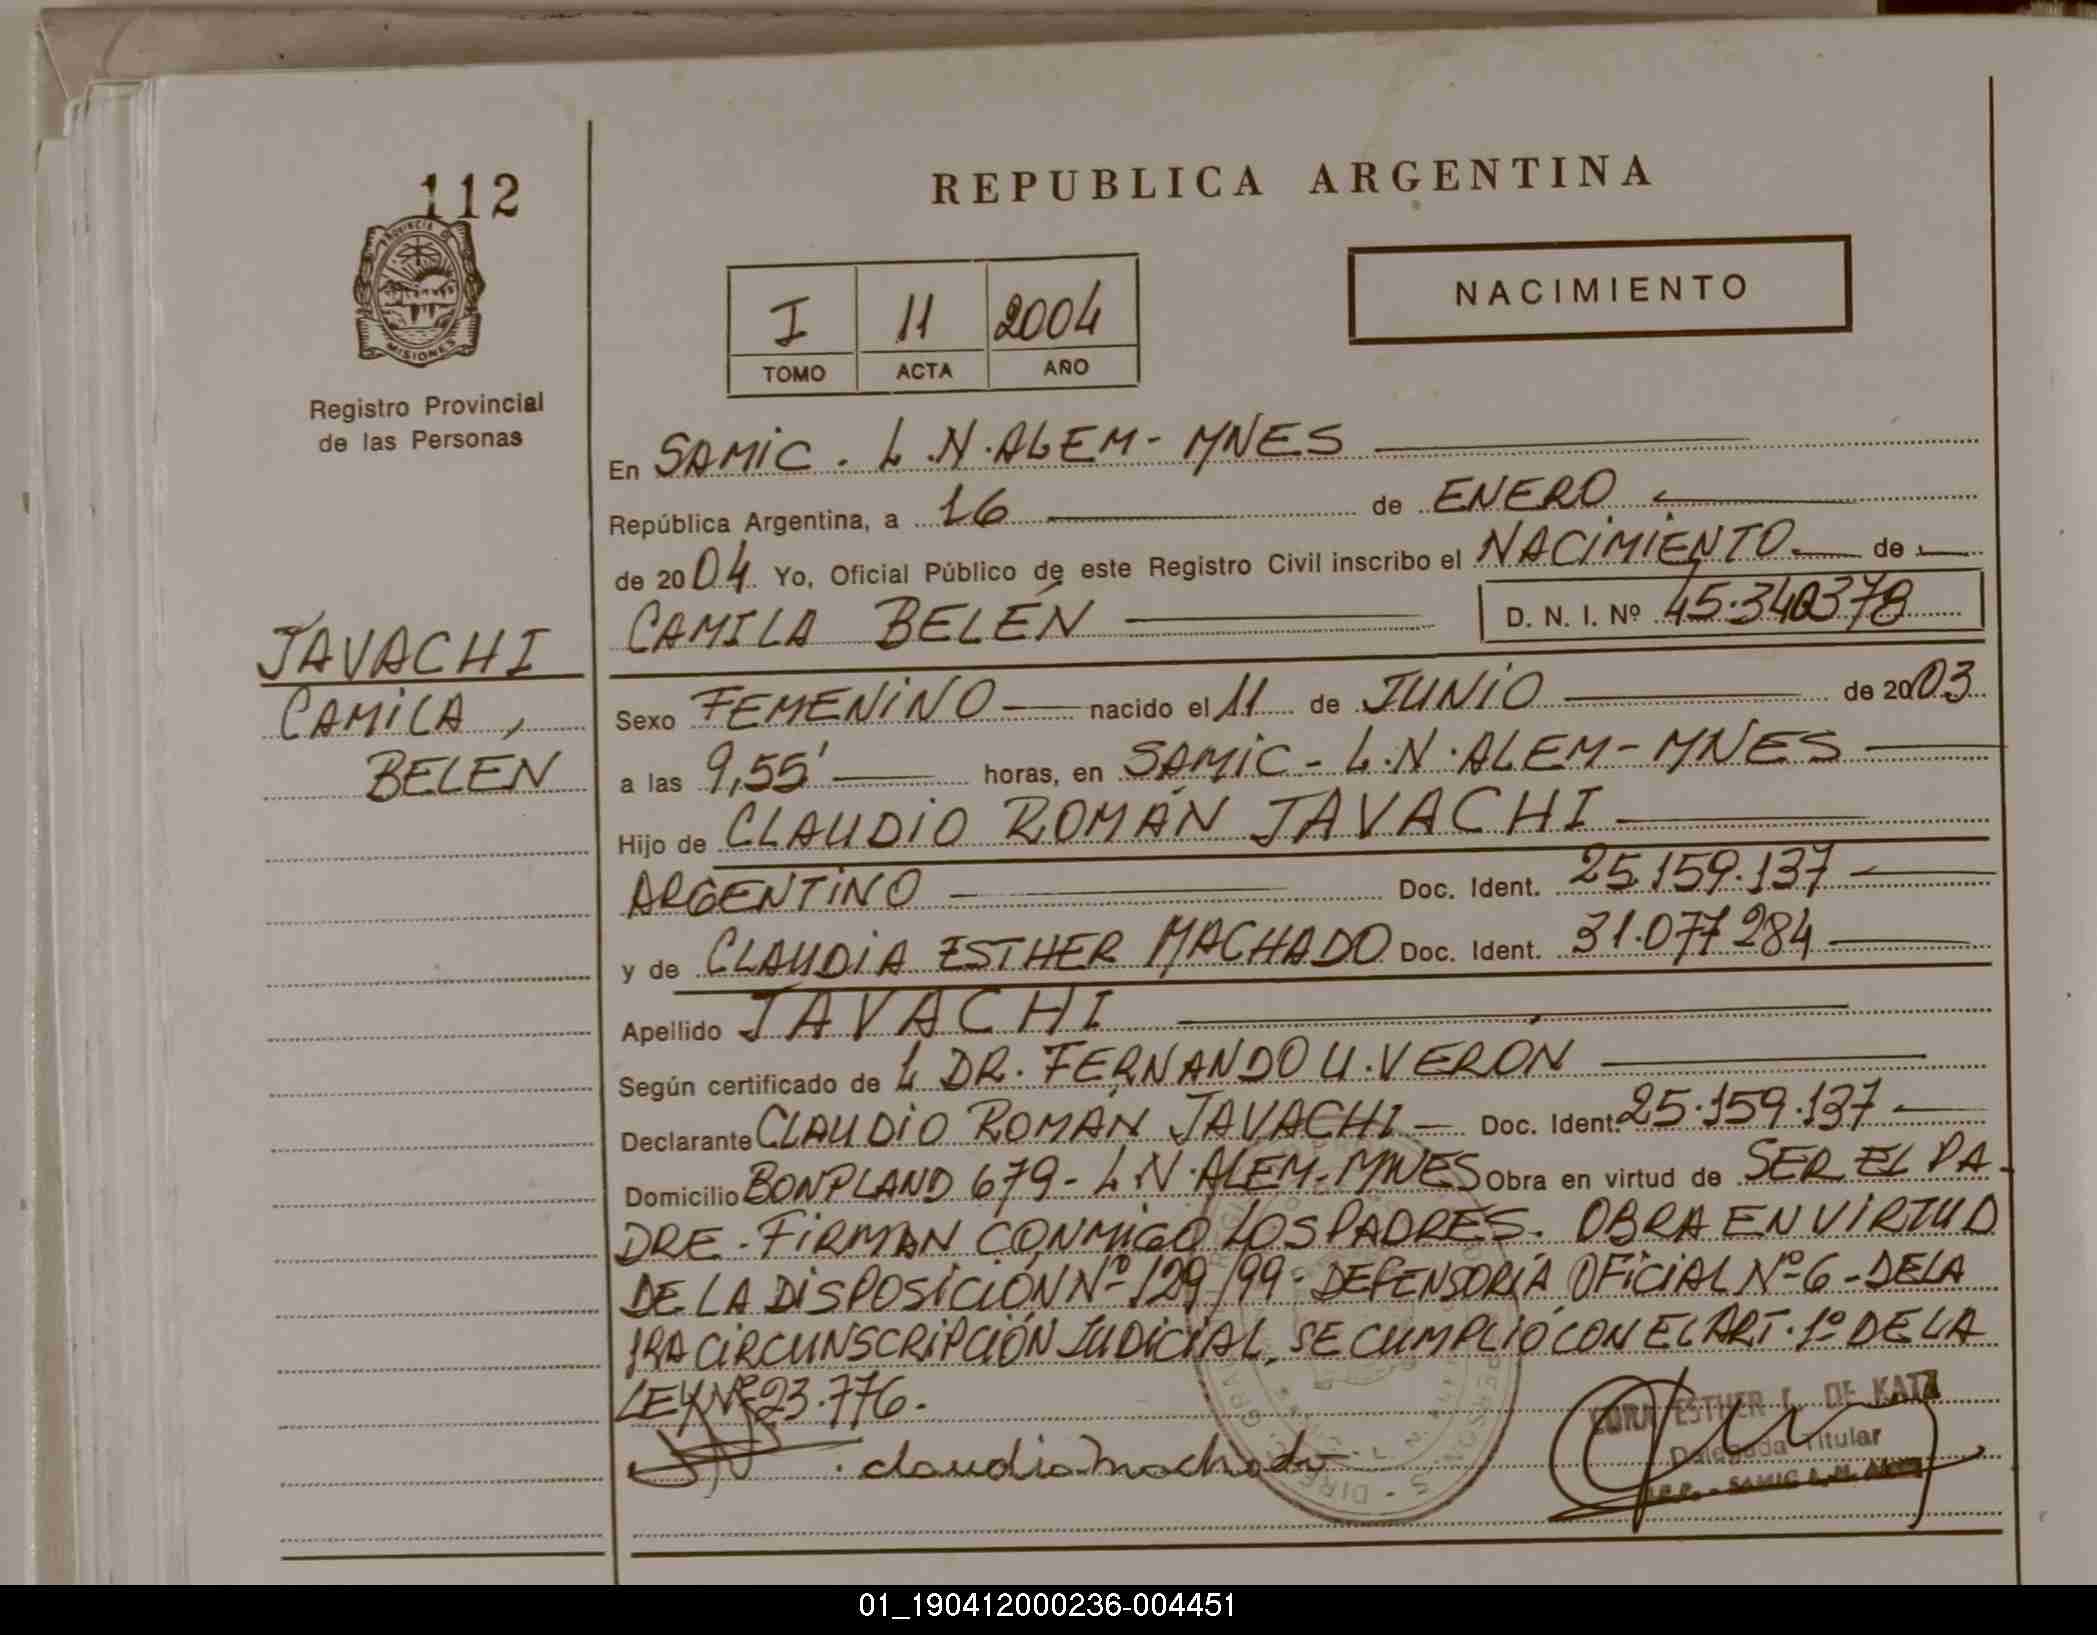 112
PROVINCIA DE
MISIONES
Registro Provincial
de las Personas
REPUBLICA ARGENTINA
I 11 2004
TOMO ACTA AÑO
NACIMIENTO
En SAMIC. L.N. ALEM - MNES
República Argentina, a 16 de ENERO
de 2004. Yo, Oficial Público de este Registro Civil inscribo el NACIMIENTO de
CAMILA BELÉN D. N. I. Nº 45.340378
JAVACHI
CAMILA,
BELEN
Sexo FEMENINO nacido el 11 de JUNIO de 2003
a las 9,55' horas, en SAMIC - L.N. ALEM - MNES
Hijo de CLAUDIO ROMÁN JAVACHI
ARGENTINO Doc. Ident. 25.159.137
y de CLAUDIA ESTHER MACHADO Doc. Ident. 31.077284
Apellido JAVACHI
Según certificado de L DR. FERNANDO U. VERON
Declarante CLAUDIO ROMÁN JAVACHI Doc. Ident. 25.159.137
Domicilio BONPLAND 679 - L.N. ALEM - MNES Obra en virtud de SER EL PA-
DRE. FIRMAN CONMIGO LOS PADRES. OBRA EN VIRTUD
DE LA DISPOSICIÓN Nº 129/99 - DEFENSORÍA OFICIAL Nº 6 - DE LA
1RA CIRCUNSCRIPCIÓN JUDICIAL, SE CUMPLIÓ CON EL ART. 1º DE LA
LEY Nº 23.776.
Claudia Machado
ESTHER L. DE KATZ
Delegada Titular
SAMIC L. N. ALEM
01_190412000236-004451